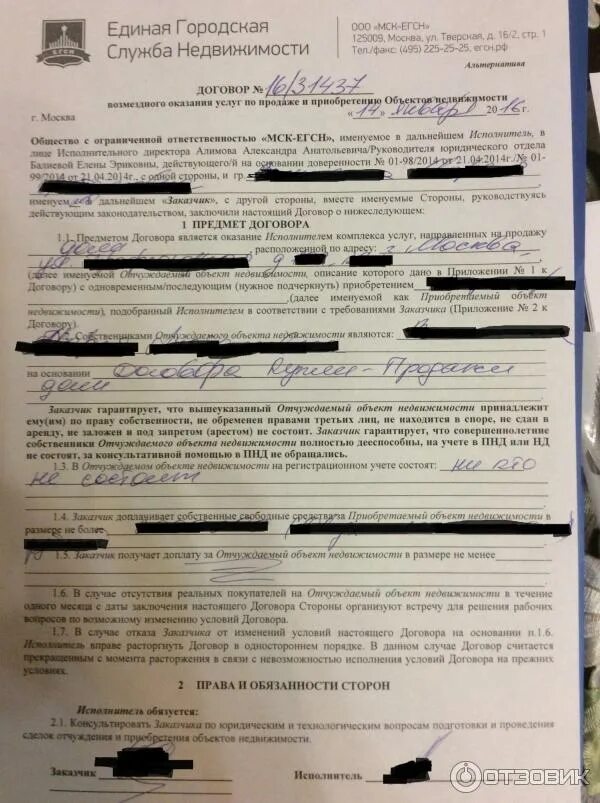 Единая Городская
Служба Недвижимости
ЕГСН
ООО «МСК-ЕГСН»
125009, Москва, ул. Тверская, д. 16/2, стр. 1
Тел./факс: (495) 225-25-25, егсн.рф
Альтернатива
ДОГОВОР № 16/31437
возмездного оказания услуг по продаже и приобретению Объектов недвижимости
г. Москва
«14» января 2016 г.
Общество с ограниченной ответственностью «МСК-ЕГСН», именуемое в дальнейшем Исполнитель, в
лице Исполнительного директора Алимова Александра Анатольевича/Руководителя юридического отдела
Балиевой Елены Эриковны, действующего/й на основании доверенности № 01-98/2014 от 21.04.2014г./№ 01-
99/2014 от 21.04.2014г., с одной стороны, и гр.
именуем в дальнейшем «Заказчик», с другой стороны, вместе именуемые Стороны, руководствуясь
действующим законодательством, заключили настоящий Договор о нижеследующем:
1 ПРЕДМЕТ ДОГОВОРА
1.1. Предметом Договора является оказание Исполнителем комплекса услуг, направленных на продажу
расположенной по адресу: г. Москва,
ул. д.
(далее именуемой Отчуждаемый объект недвижимости, описание которого дано в Приложении № 1 к
Договору) с одновременным/последующим (нужное подчеркнуть) приобретением
(далее именуемый как Приобретаемый объект
недвижимости), подобранный Исполнителем в соответствии с требованиями Заказчика (Приложение № 2 к
Договору).
Собственниками Отчуждаемого объекта недвижимости являются:
на основании Договора Купли-Продажи
доли
Заказчик гарантирует, что вышеуказанный Отчуждаемый объект недвижимости принадлежит
ему(им) по праву собственности, не обременен правами третьих лиц, не находится в споре, не сдан в
аренду, не заложен и под запретом (арестом) не состоит. Заказчик гарантирует, что совершеннолетние
собственники Отчуждаемого объекта недвижимости полностью дееспособны, на учете в ПНД или НД
не состоят, за консультативной помощью в ПНД не обращались.
1.3. В Отчуждаемом объекте недвижимости на регистрационном учете состоят: ни кто
не состоит
1.4. Заказчик доплачивает собственные свободные средства за Приобретаемый объект недвижимости в
размере не более
1.5. Заказчик получает доплату за Отчуждаемый объект недвижимости в размере не менее
1.6. В случае отсутствия реальных покупателей на Отчуждаемый объект недвижимости в течение
одного месяца с даты заключения настоящего Договора Стороны организуют встречу для решения рабочих
вопросов по возможному изменению условий Договора.
1.7. В случае отказа Заказчика от изменений условий настоящего Договора на основании п.1.6.
Исполнитель вправе расторгнуть Договор в одностороннем порядке. В данном случае Договор считается
прекращенным с момента расторжения в связи с невозможностью исполнения условий Договора на прежних
условиях.
2 ПРАВА И ОБЯЗАННОСТИ СТОРОН
Исполнитель обязуется:
2.1. Консультировать Заказчика по юридическим и технологическим вопросам подготовки и проведения
сделок отчуждения и приобретения объектов недвижимости.
Заказчик
Исполнитель
ОТЗОВИК